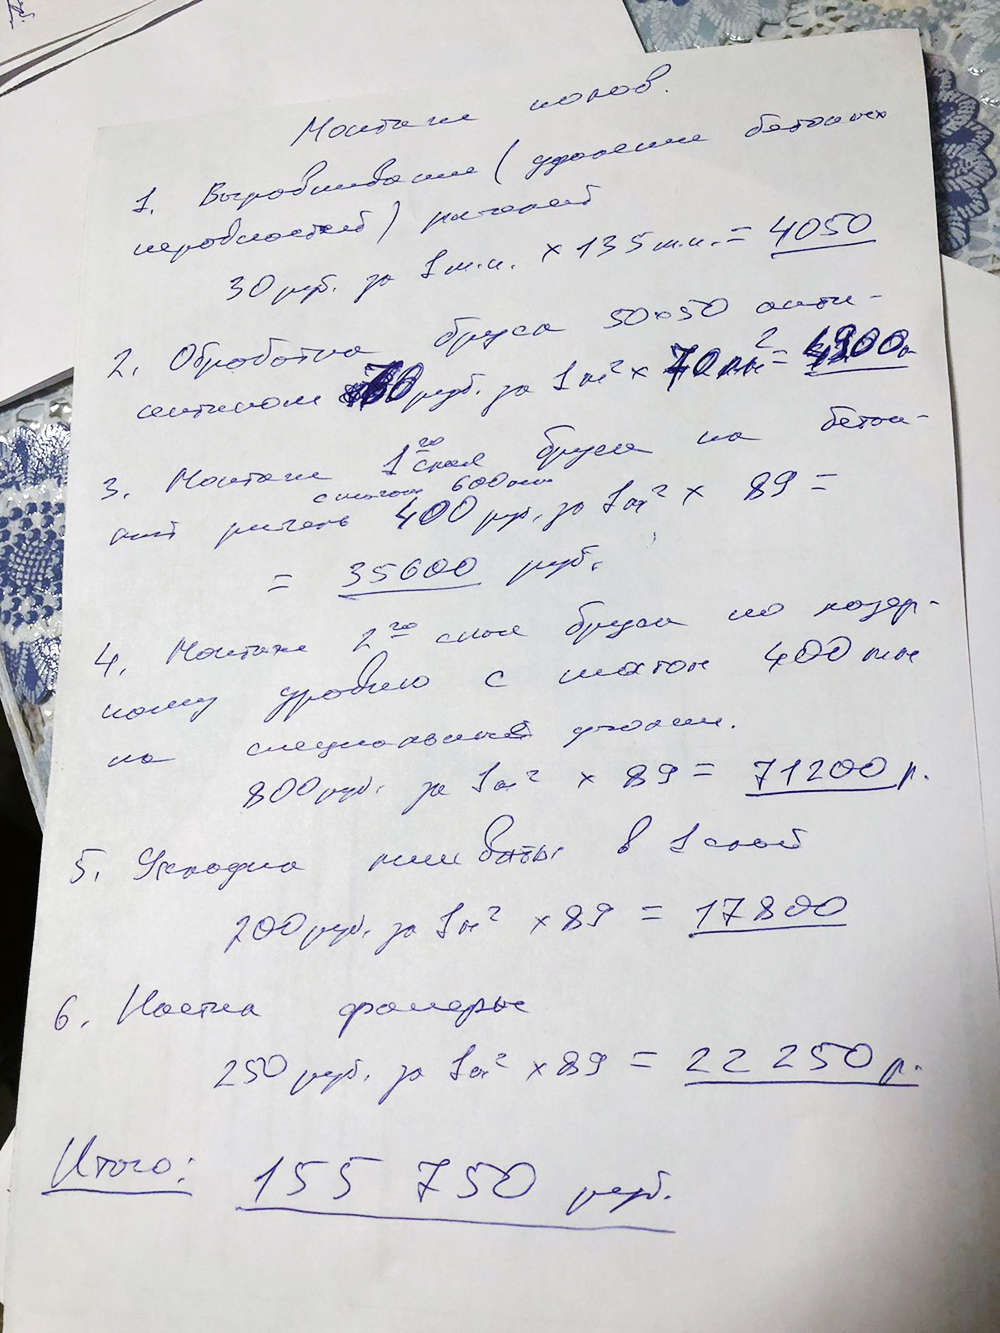 Монтаж полов.
1. Выравнивание (удаление бетонных
неровностей) ригелей
30 руб. за 1 м.п. × 135 м.п. = 4050
2. Обработка бруса 50×50 анти-
септиком 70 руб. за 1 м² × 70 м² = 4900
3. Монтаж 1го слоя бруса на бетон-
с шагом 600 мм
ный ригель 400 руб. за 1 м² × 89 =
= 35600 руб.
4. Монтаж 2го слоя бруса по лазер-
ному уровню с шагом 400 мм
на специальные уголки.
800 руб. за 1 м² × 89 = 71200 р.
5. Укладка мин ваты в 1 слой
200 руб. за 1 м² × 89 = 17800
6. Настил фанеры
250 руб. за 1 м² × 89 = 22 250 р.
Итого: 155 750 руб.